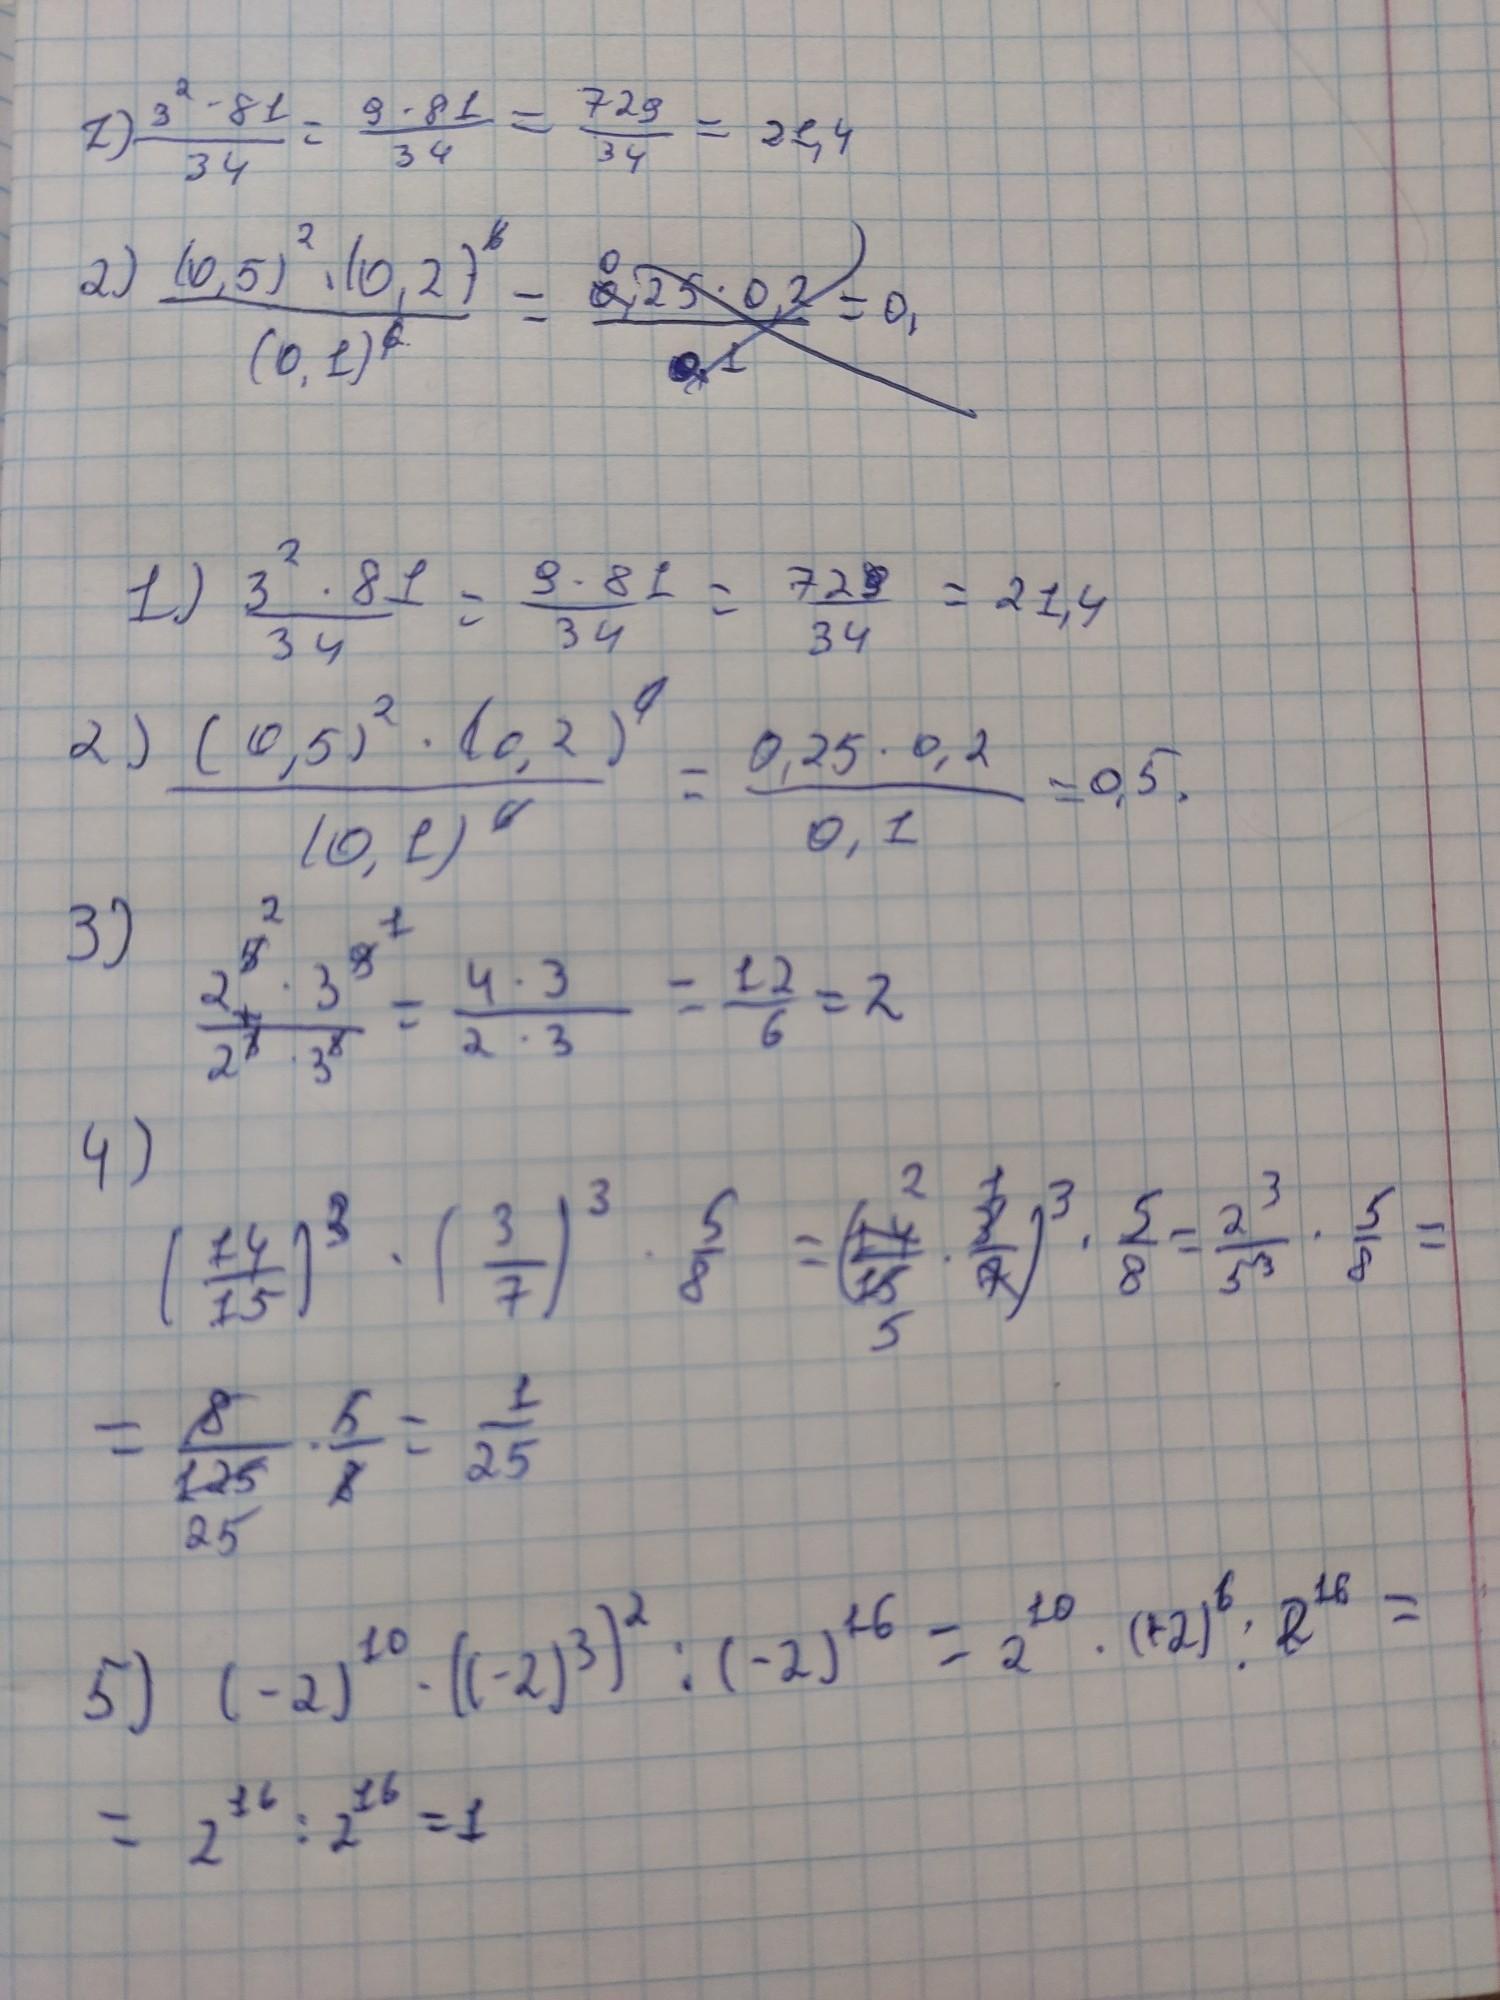 1) (3² · 81)/34 = (9 · 81)/34 = 729/34 = 21,4
2) ((0,5)² · (0,2)⁶)/(0,1)⁶ = (0,25 · 0,2)/0,1 = 0,
1) (3² · 81)/34 = (9 · 81)/34 = 729/34 = 21,4
2) ((0,5)² · (0,2))/(0,1) = (0,25 · 0,2)/0,1 = 0,5.
3)
= (4 · 3)/(2 · 3) = 12/6 = 2
4)
(14/15)³ · (3/7)³ · 5/8 = (14/15 · 3/7)³ · 5/8 = 2³/5³ · 5/8 =
= 8/125 · 5/8 = 1/25
25
5) (-2)¹⁰ · ((-2)³)² : (-2)¹⁶ = 2¹⁰ · (+2)⁶ : 2¹⁶ =
= 2¹⁶ : 2¹⁶ = 1